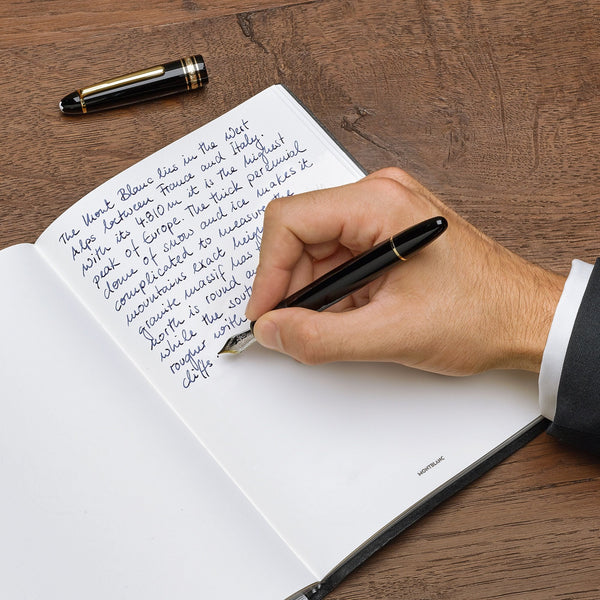 The Mont Blanc lies in the West
Alps between France and Italy.
With its 4810 m it is the highest
peak of Europe. The thick perennial
dome of snow and ice makes it
complicated to measure the
mountains exact
granite massif was
north is round
while the
rougher with
cliffs.
MONTBLANC